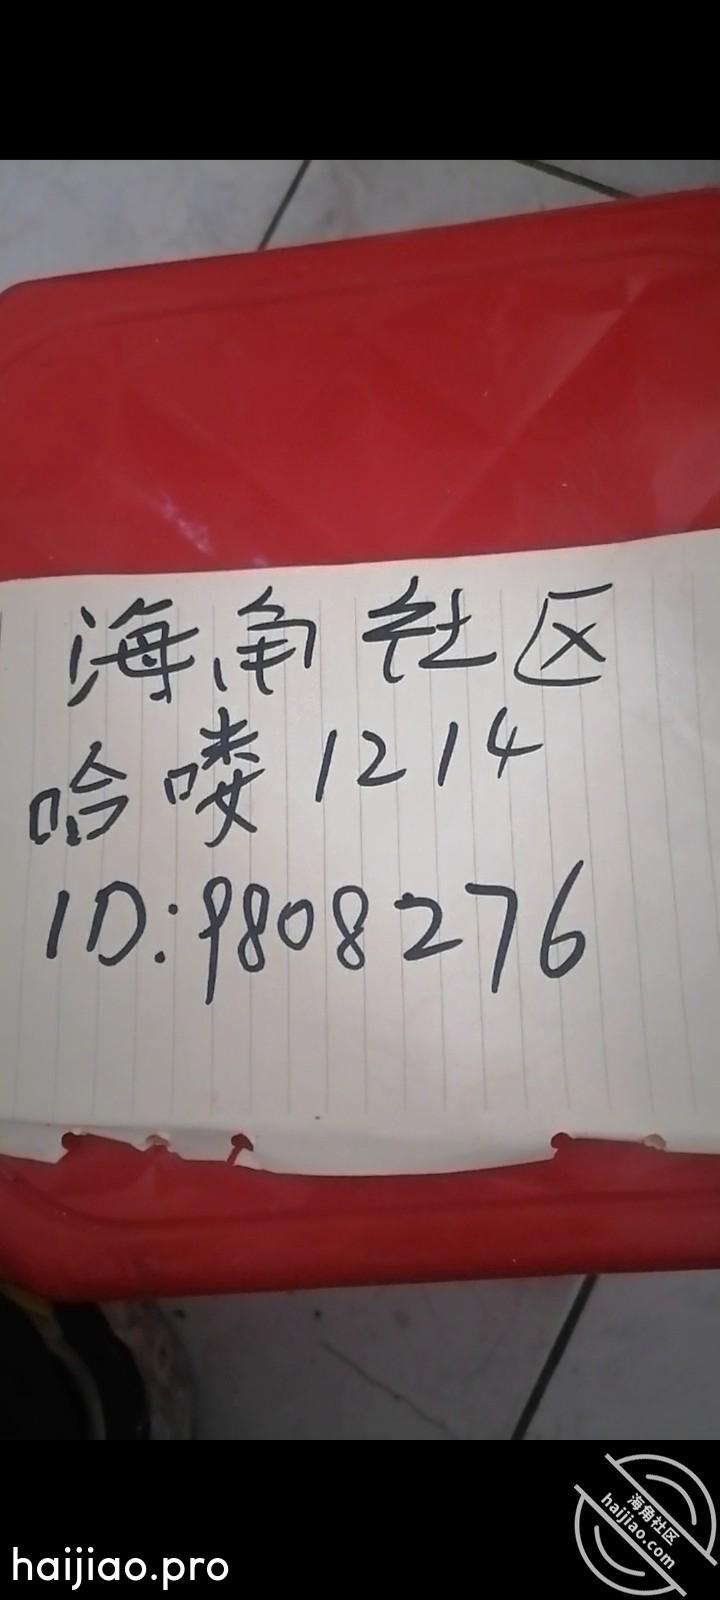 海角社区
哈喽1214
ID:9808276
海角社区
haijiao.com
haijiao.pro